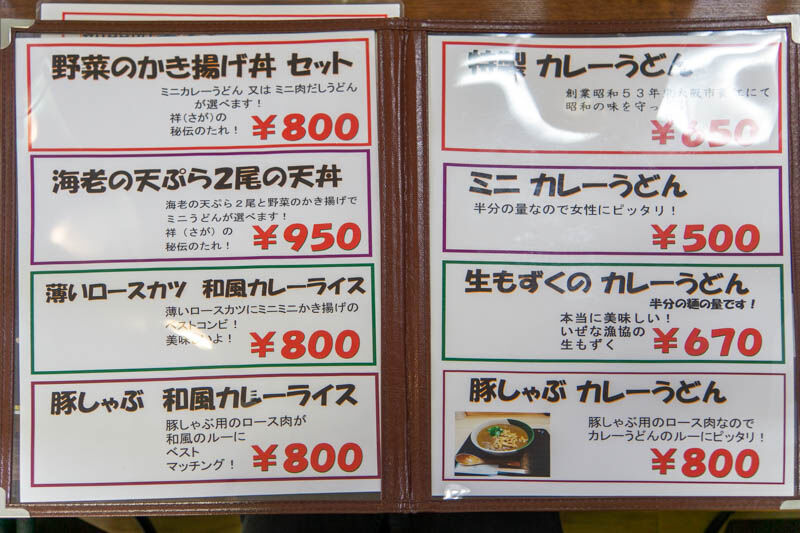 野菜のかき揚げ丼 セット
ミニカレーうどん 又は ミニ肉だしうどん
が選べます!
祥(さが)の
秘伝のたれ!
¥800
海老の天ぷら2尾の天丼
海老の天ぷら2尾と野菜のかき揚げで
ミニうどんが選べます!
祥(さが)の
秘伝のたれ!
¥950
薄いロースカツ 和風カレーライス
薄いロースカツにミニミニかき揚げの
ベストコンビ!
美味しいよ!
¥800
豚しゃぶ 和風カレーライス
豚しゃぶ用のロース肉が
和風のルーに
ベスト
マッチング!
¥800
特製 カレーうどん
創業昭和53年
大阪市
にて
昭和の味を守っ
¥650
ミニ カレーうどん
半分の量なので女性にピッタリ!
¥500
生もずくの カレーうどん
半分の麺の量です!
本当に美味しい!
いぜな漁協の
生もずく
¥670
豚しゃぶ カレーうどん
豚しゃぶ用のロース肉なので
カレーうどんのルーにピッタリ!
¥800